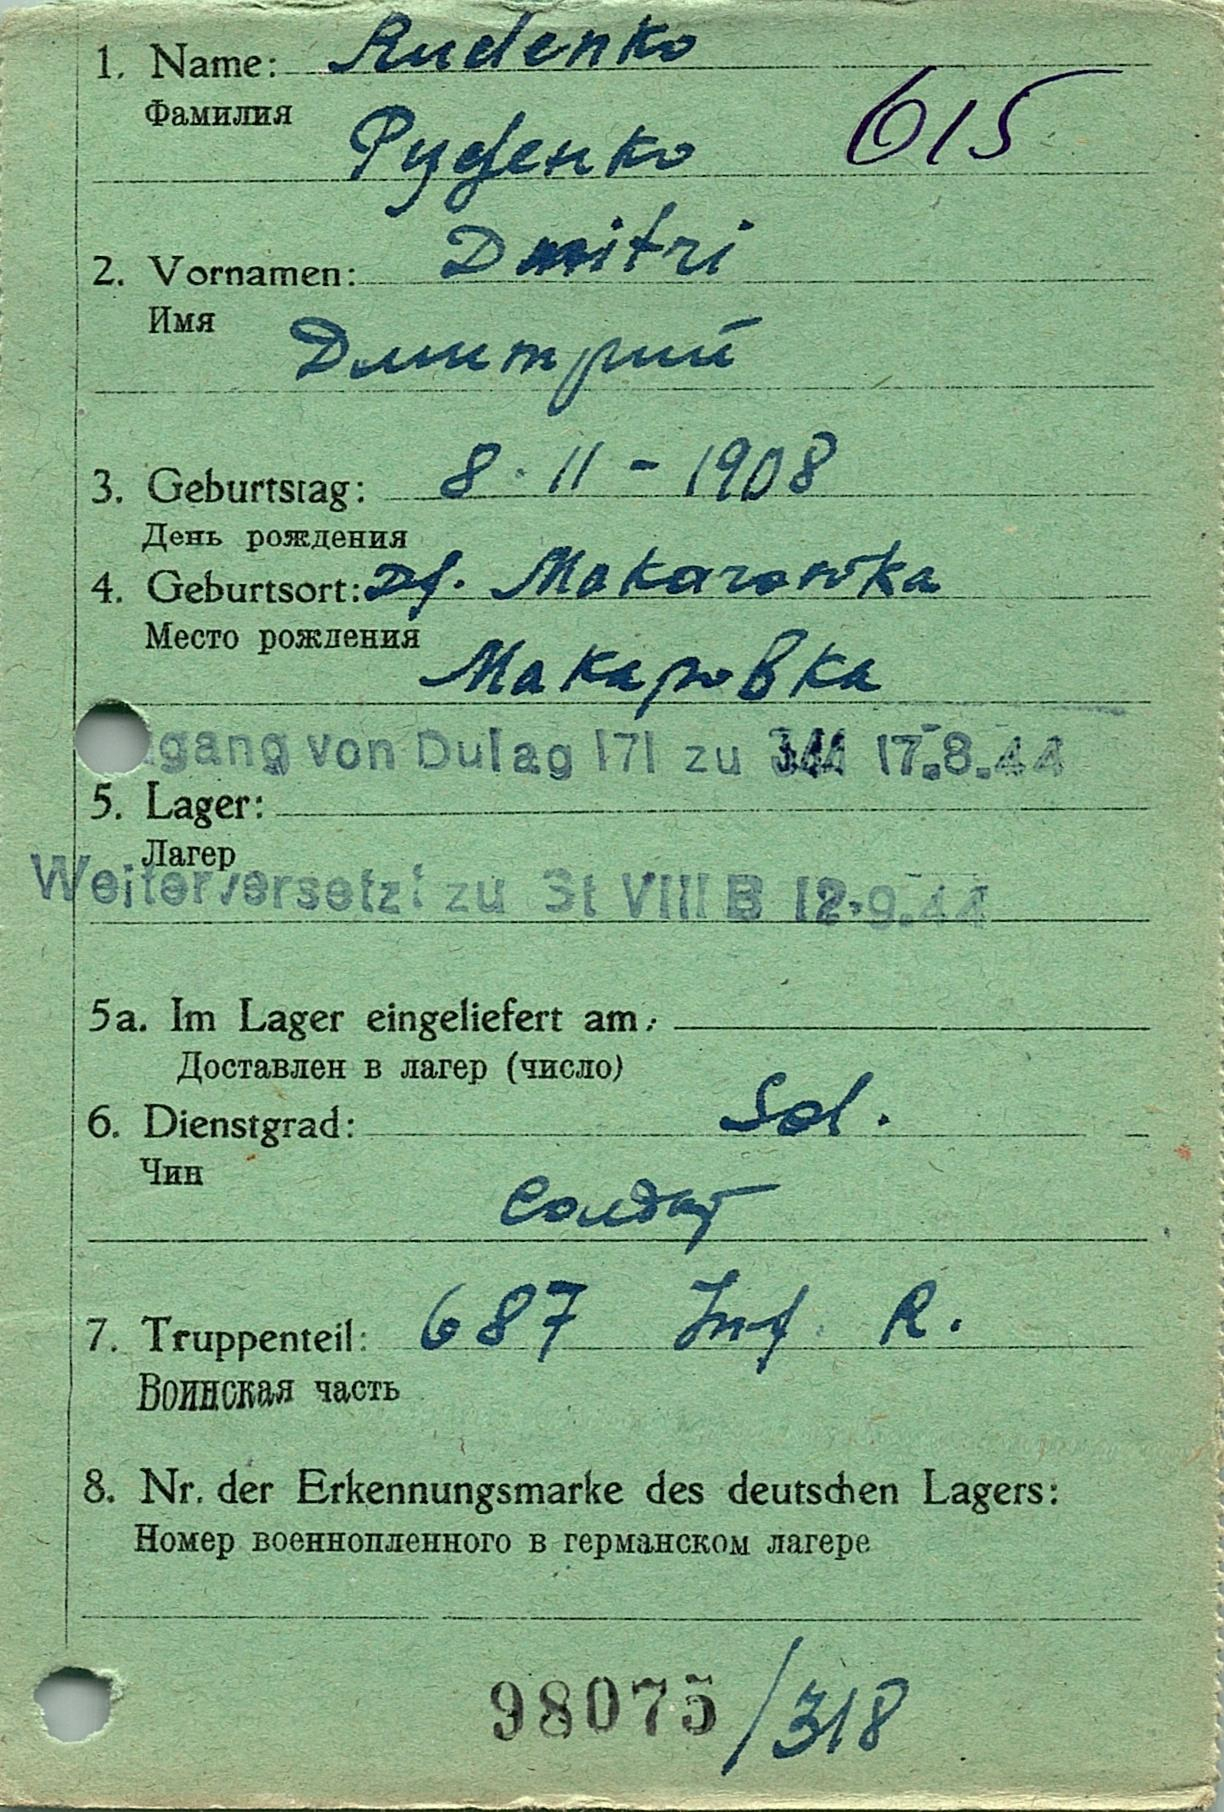 1. Name: Rudenko
Фамилия
Руденко 615
2. Vornamen: Dmitri
Имя
Дмитрий
3. Geburtstag: 8.11-1908
День рождения
4. Geburtsort: Df. Makarowka
Место рождения
Макаровка
gang von Dulag 171 zu 17.8.44
5. Lager:
Лагер
Weiterversetzt zu St VIII B 12.9.44
5a. Im Lager eingeliefert am:
Доставлен в лагер (число)
6. Dienstgrad: Sol.
Чин
Солдат
7. Truppenteil: 687 Inf. R.
Воинская часть
8. Nr. der Erkennungsmarke des deutschen Lagers:
Номер военнопленного в германском лагере
98075/318